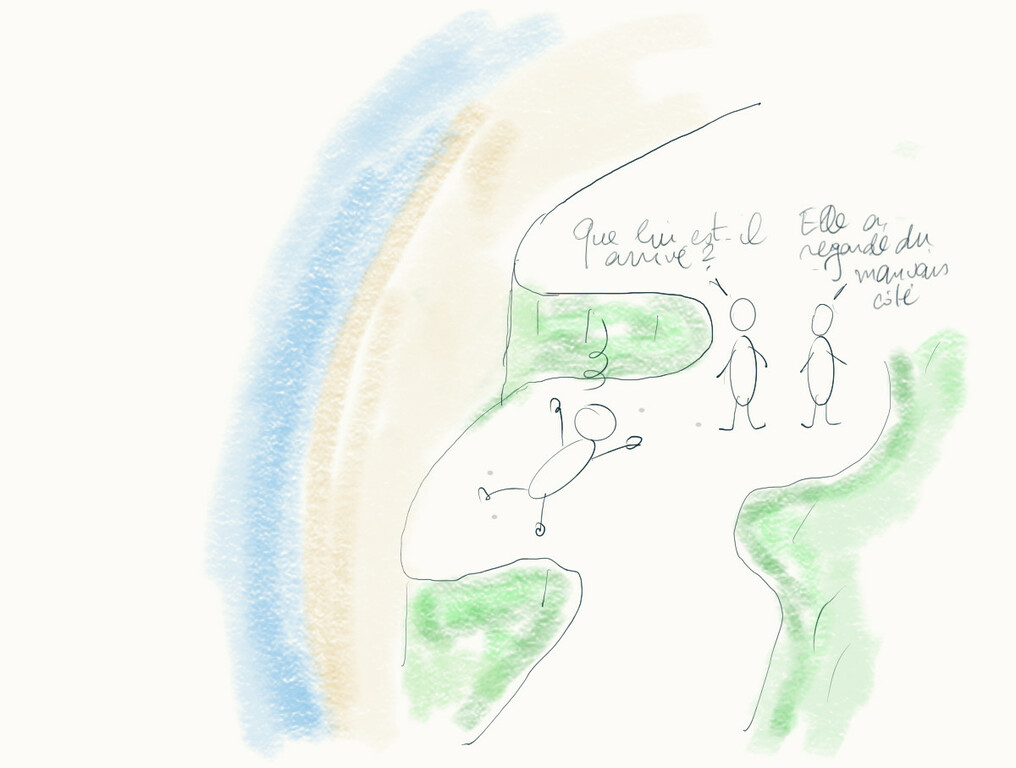 Que lui est-il
arrivé ?
Elle a
regardé du
mauvais
côté